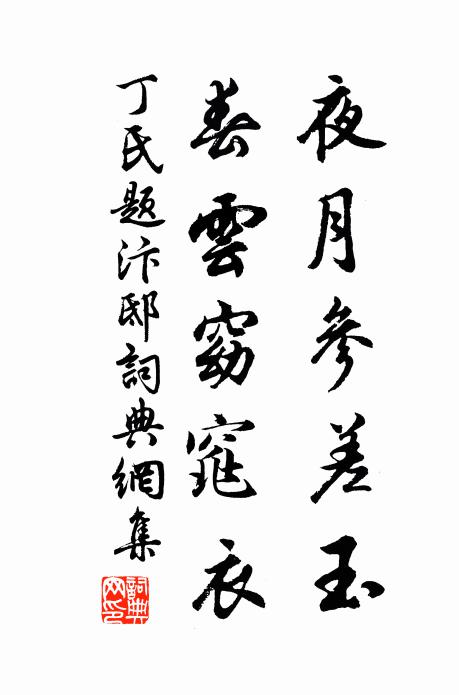 夜月參差玉
春雲窈窕衣
丁氏題汴邸詞典網集
詞典
网印